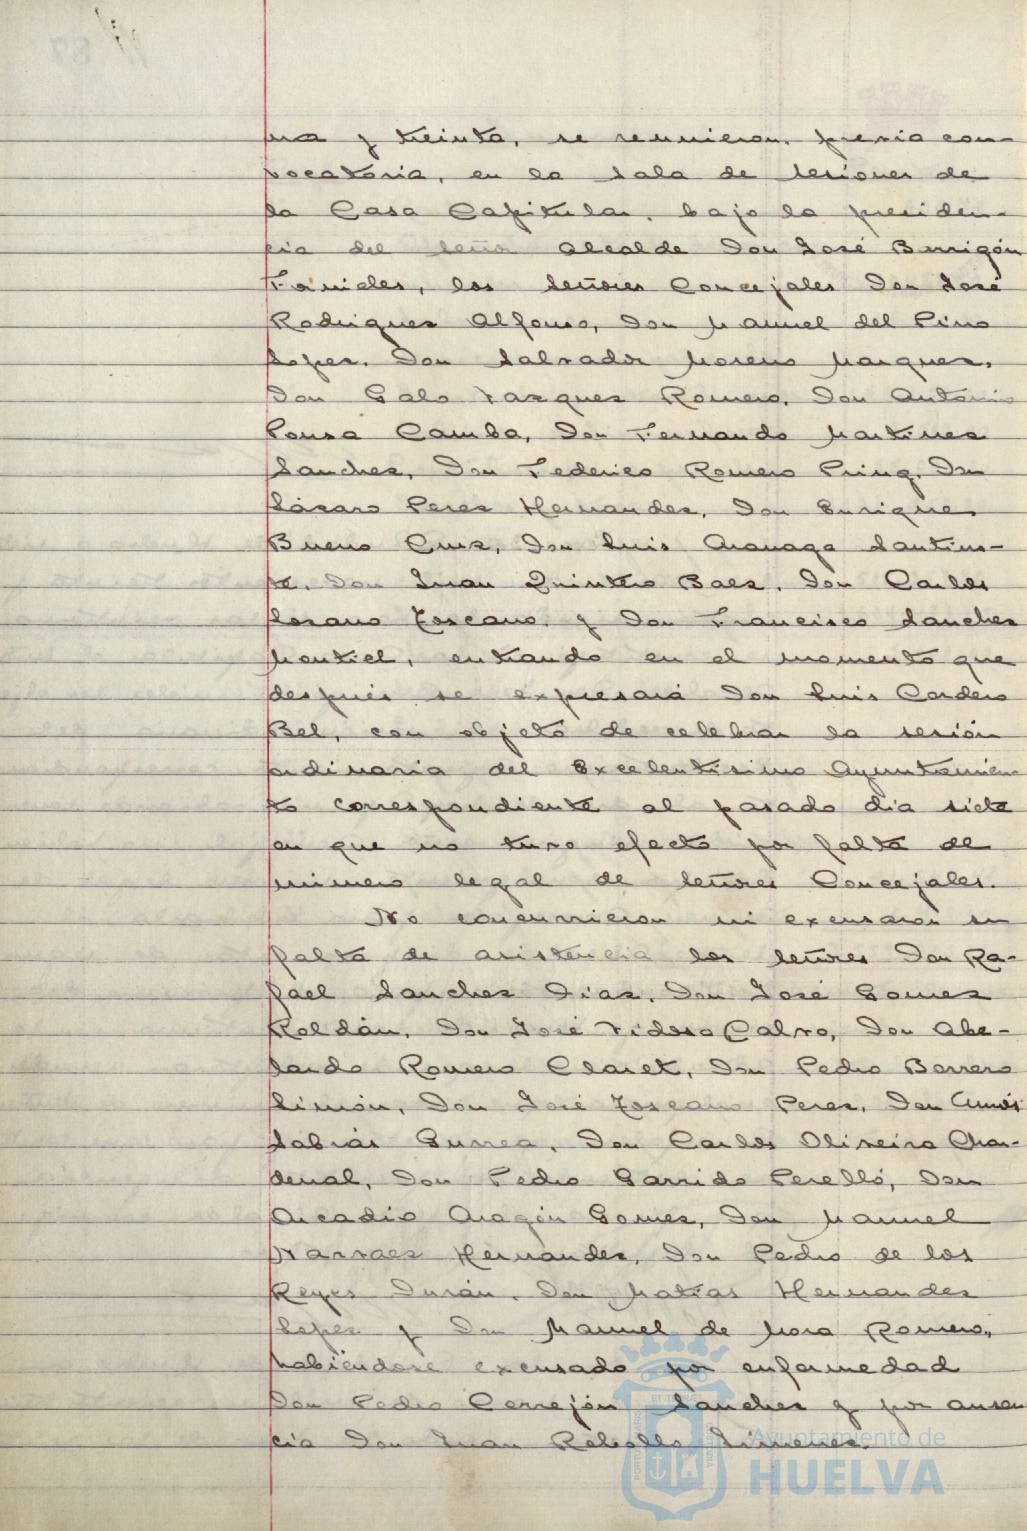 na y treinta, se reunieron, previa con-
vocatoria, en la Sala de Sesiones de
la Casa Capitular, bajo la presiden-
cia del Señor Alcalde Don José Barrigón
Fornieles, los Señores Concejales Don José
Rodriguez Alfonso, Don Manuel del Pino
Lopez, Don Salvador Moreno Marquez,
Don Galo Vazquez Romero, Don Antonio
Pousa Camba, Don Fernando Martinez
Sanchez, Don Federico Romero Don
Lázaro Perez Hernandez, Don Enrique
Bueno Cruz, Don Luis Aranaga Santius-
te, Don Juan Quintero Baez, Don Carlos
Lozano Toscano, y Don Francisco Sanchez
Montiel, entrando en el momento que
después se expresará Don Luis Cordero
Bel, con objeto de celebrar la sesión
ordinaria del Excelentisimo Ayuntamien-
to correspondiente al pasado dia siete
en que no tuvo efecto por falta de
número legal de Señores Concejales.
No concurrieron ni excusaron su
falta de asistencia los Señores Don Ra-
fael Sanchez Diaz, Don José Gomez
Roldán, Don José Vidosa Calvo, Don Abe-
lardo Romero Claret, Don Pedro Borrero
Limón, Don José Toscano Perez, Don Amós
Sabrás Gurrea, Don Carlos Oliveira Char-
denal, Don Pedro Garrido Perelló, Don
Arcadio Aragón Gomez, Don Manuel
Narvaez Hernandez, Don Pedro de los
Reyes Durán, Don Matias Hernandez
Lopez y Don Manuel de Mora Romero,
habiéndose excusado por enfermedad
Don Pedro Cerrejón Sanchez y por ausen
cia Don Juan Rebollo Jimenez.
Ayuntamiento de
HUELVA